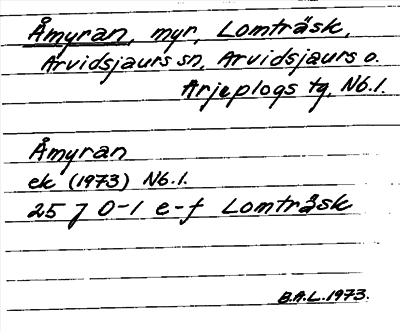 Åmyran, myr, Lomträsk,
Arvidsjaurs sn, Arvidsjaurs o.
Arjeplogs tg, Nb.l.
Åmyran
ek (1973) Nb.l.
25 J 0-1 e-f Lomträsk
B.A.L. 1973.